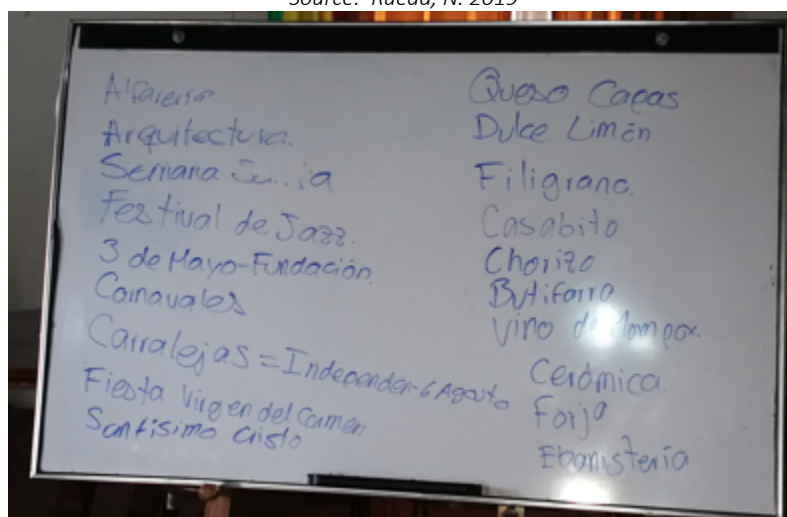 Source: Rueda, N. 2019
Alfarería
Arquitectura.
Semana
Festival de Jazz.
3 de Mayo-Fundación.
Carnavales
Corralejas = Independen-6 Agosto
Fiesta Virgen del Carmen
Santísimo Cristo
Queso Capas
Dulce Limón
Filigrana.
Casabito
Chorizo
Butifarra
Vino de Mompox.
Cerámica.
Forja
Ebanistería